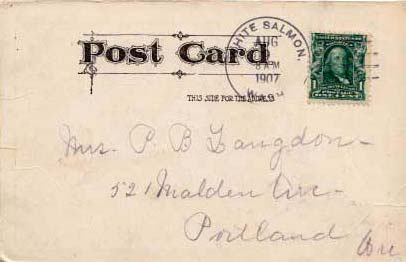 Post Card
WHITE SALMON,
AUG
8 AM
1907
Wash
THIS SIDE FOR THE ADDRESS
1
Mrs. P. B Langdon -
521 Malden Ave -
Portland Ore